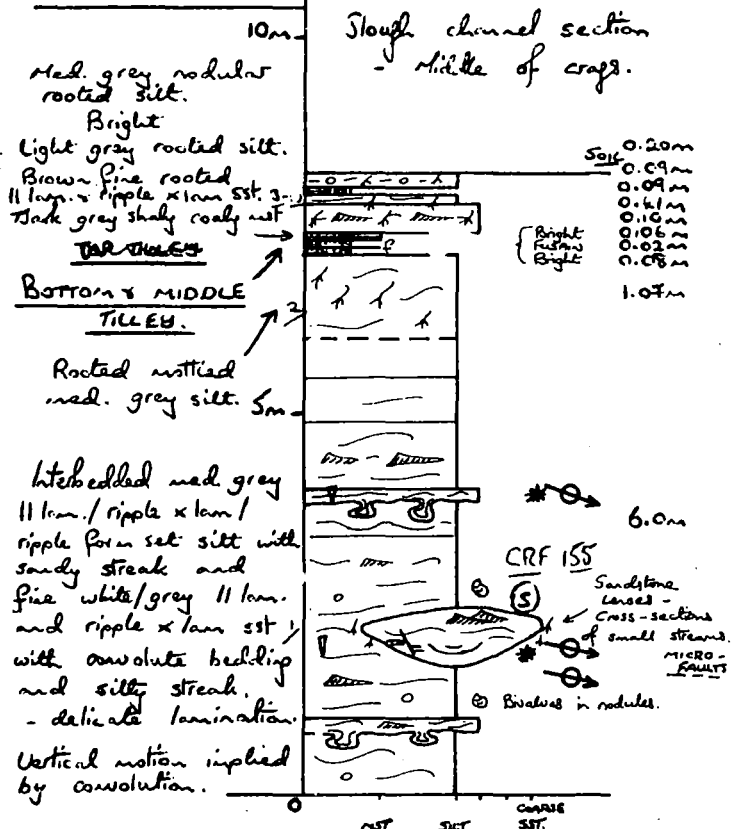 10m
Slough channel section
- Middle of crags.
Med. grey nodular
rooted silt.
Bright
Light grey rooted silt.
Brown fine rooted
11 lam. & ripple x lam sst.
3
Dark grey shaly coaly mst
BOTTOM & MIDDLE
TILLEY.
2
Rooted mottled
med. grey silt.
5m
Interbedded med. grey
11 lam. / ripple x lam /
ripple form set silt with
sandy streak and
fine white/grey 11 lam.
and ripple x lam sst
1
with convolute bedding
and silty streak.
- delicate lamination.
Vertical motion implied
by convolution.
0
MST
SILT
COARSE
SST.
SOIL
0.20m
0.09m
0.09m
0.41m
0.10m
Bright 0.106m
FUSAIN 0.02m
Bright 0.08m
f
1.07m
6.0m
CRF 155
S
Sandstone
lenses -
Cross-sections
of small streams.
MICRO-
FAULTS
Bivalves in nodules.